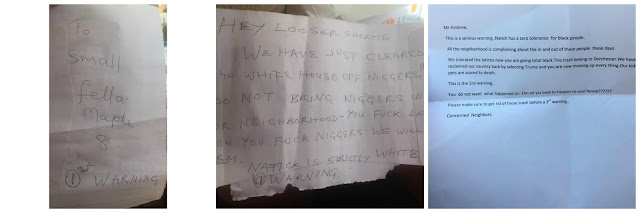 To
small
fella
Maple
8
1st WARNING
HEY LOOSER SHORTIE
WE HAVE JUST CLEARED
WHITE HOUSE OFF NIGGERS.
NOT BRING NIGGERS IN
NEIGHBORHOOD-YOU FUCK
YOU FUCK NIGGERS. WE WILL
EM. NATICK IS STRICTLY WHITE
1 WARNING
Mr Andrew,
This is a serious warning. Natick has a zero tolerance for black people.
All the neighborhood is complaining about the in and out of these people these days.
We tolerated the latinos now you are going total black. This trash belong to Dorchester. We have
reclaimed our country back by selecting Trump and you are now messing up every thing. Our
pets are scared to death.
This is the 2nd warning.
You do not want what happened on to happen to your house??????
Please make sure to get rid of these trash before a 3rd warning.
Concerned Neighbors.